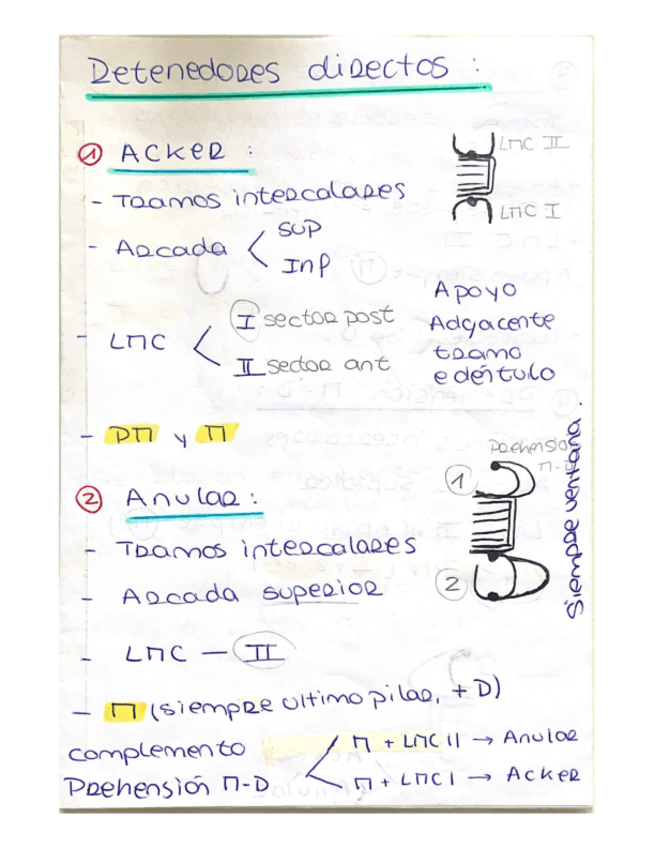 Retenedores directos :
① Acker :
- Tramos intercalares
- Arcada < sup
Inf
- LMC < I sector post
II sector ant
- PM y M
LMC II
LMC I
Apoyo
Adyacente
tramo
edéntulo
② Anular :
- Tramos intercalares
- Arcada superior
- LMC — II
- M (siempre ultimo pilar, + D)
complemento
Prehensión M-D < M + LMC II → Anular
M + LMC I → Acker
Prehension
M-D
1
2
Siempre ventana.